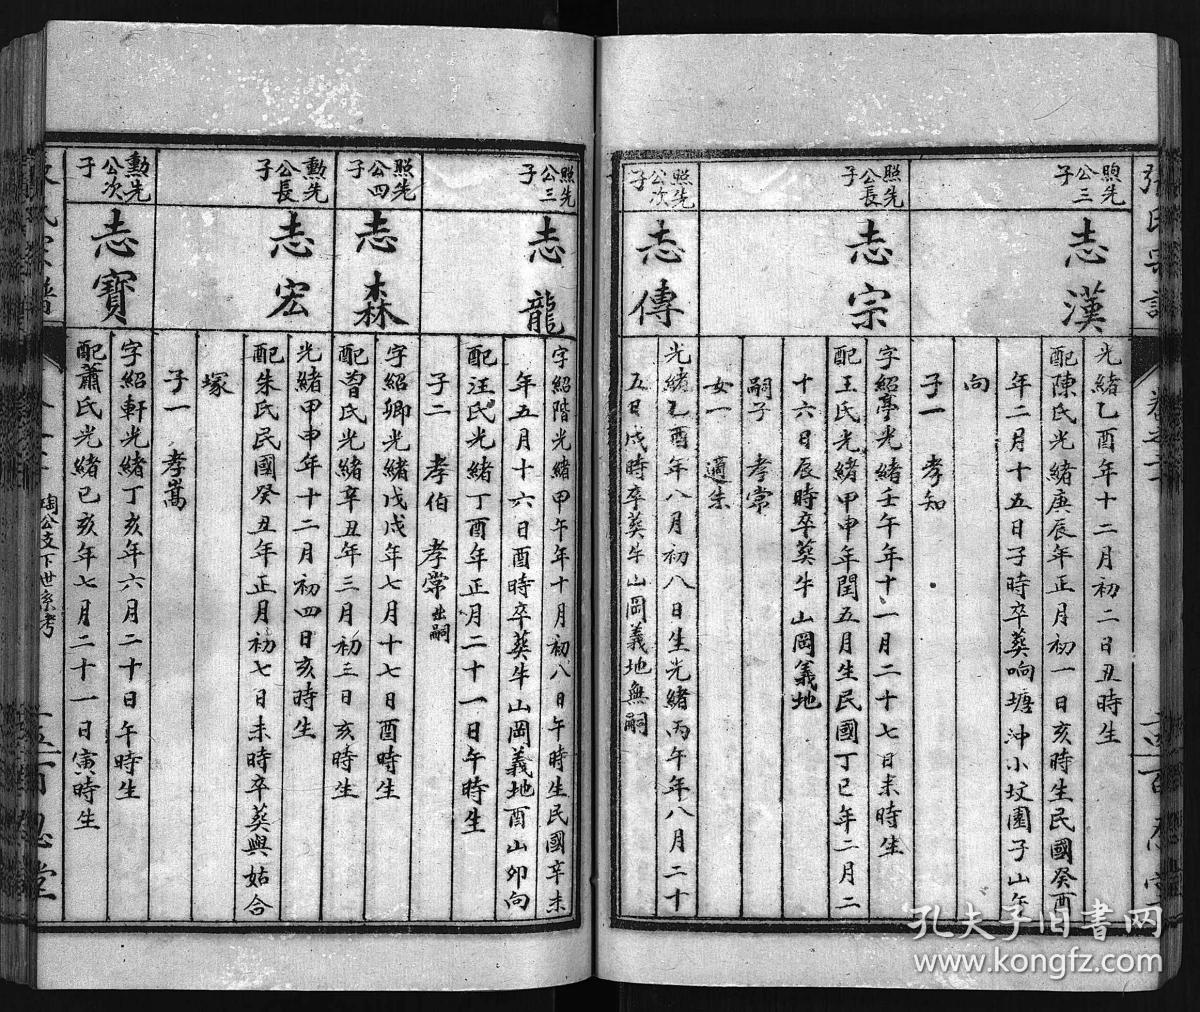 張氏宗譜
卷之二
百忍堂
煦先
公三
子
志漢
光緒乙酉年十二月初二日丑時生
配陳氏光緒庚辰年正月初一日亥時生民國癸酉
年二月十五日子時卒葬响塘冲小坟園子山午
向
子一 孝知
照先
公長
子
志宗
字紹亭光緒壬午年十一月二十七日未時生
配王氏光緒甲申年閏五月生民國丁巳年二月二
十六日辰時卒葬牛山岡義地
嗣子 孝常
女一 適朱
照先
公次
子
志傳
光緒乙酉年八月初八日生光緒丙午年八月二十
五日戌時卒葬牛山岡義地無嗣
照先
公三
子
志龍
字紹階光緒甲午年十月初八日午時生民國辛未
年五月十六日酉時卒葬牛山岡義地酉山卯向
配汪氏光緒丁酉年正月二十一日午時生
子二 孝伯 孝常出嗣
照先
公四
子
志森
字紹卿光緒戊戌年七月十七日酉時生
配曾氏光緒辛丑年三月初三日亥時生
勲先
公長
子
志宏
光緒甲申年十二月初四日亥時生
配朱氏民國癸丑年正月初七日未時卒葬與姑合
塚
子一 孝嵩
勲先
公次
子
志寶
字紹軒光緒丁亥年六月二十日午時生
配蕭氏光緒己亥年七月二十一日寅時生
氏宗譜
陶公支下世系考
百忍堂
孔夫子旧书网
www.kongfz.com